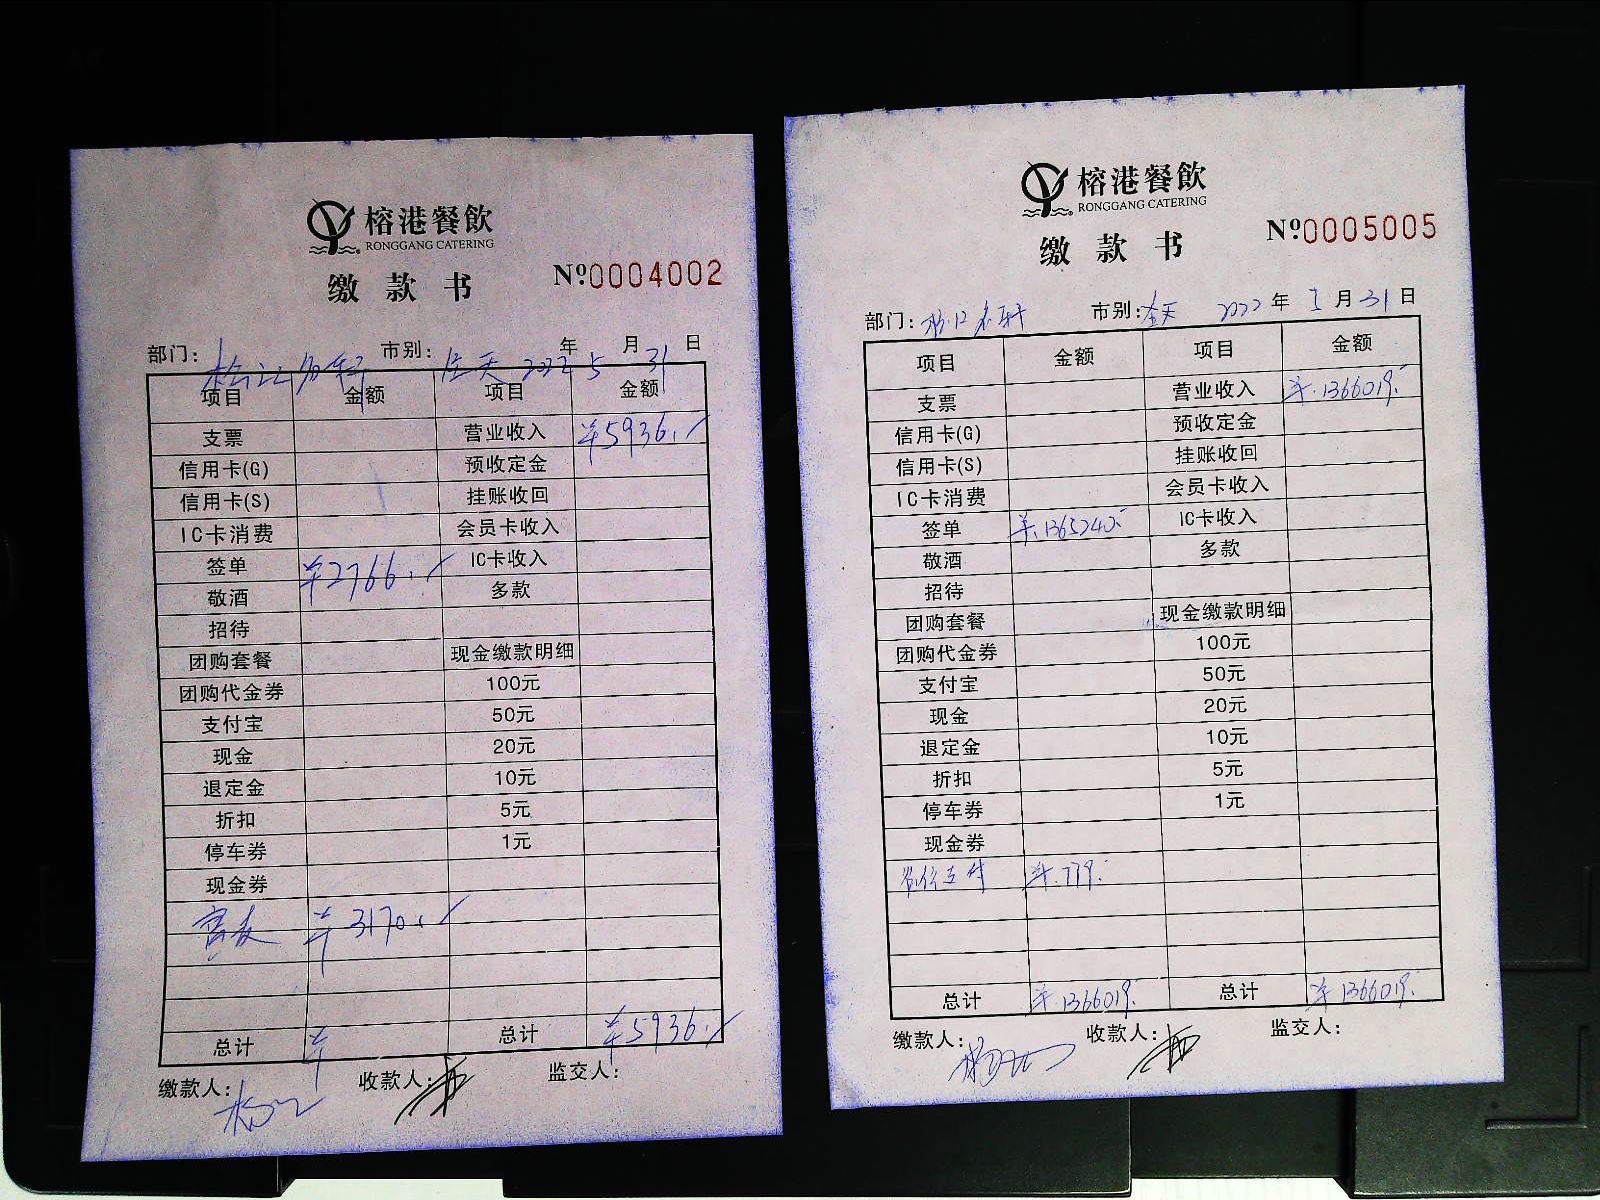 榕港餐飲
RONGGANG CATERING
缴款书
№0004002
部门: 市别: 全天 2022年5月31日
项目 金额 项目 金额
支票 营业收入 ¥5936.
信用卡(G) 预收定金
信用卡(S) 挂账收回
IC卡消费 会员卡收入
签单 ¥2766. IC卡收入
敬酒 多款
招待
团购套餐 现金缴款明细
团购代金券 100元
支付宝 50元
现金 20元
退定金 10元
折扣 5元
停车券 1元
现金券
¥3170.
总计 ¥ 总计 ¥5936.
缴款人: 收款人: 监交人:
榕港餐飲
RONGGANG CATERING
缴款书
№0005005
部门: 市别: 全天 2022年 月31日
项目 金额 项目 金额
支票 营业收入 ¥.1366019.
信用卡(G) 预收定金
信用卡(S) 挂账收回
IC卡消费 会员卡收入
签单 ¥.1365240. IC卡收入
敬酒 多款
招待
团购套餐 现金缴款明细
团购代金券 100元
支付宝 50元
现金 20元
退定金 10元
折扣 5元
停车券 1元
现金券
支付 ¥.779.
总计 ¥.1366019. 总计 ¥.1366019.
缴款人: 收款人: 监交人: